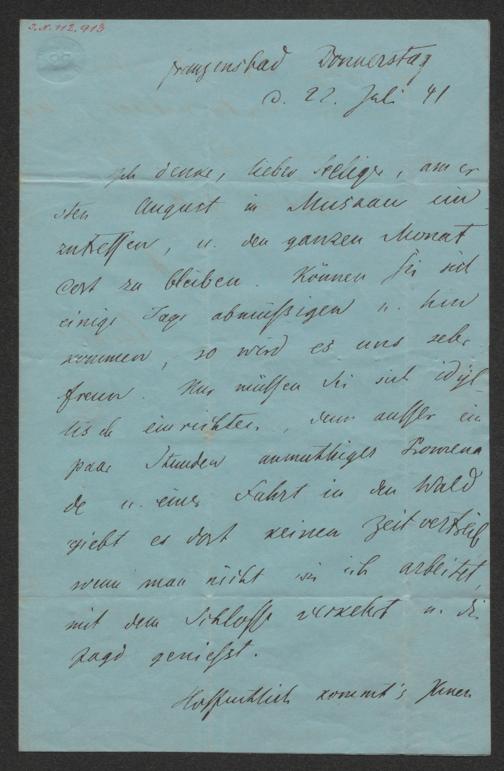 J.N. 112.913
Franzensbad Donnerstag
d. 22. Juli 41
Ich denke, lieber Seliger, am er
sten August in Muskau ein
zutreffen, u. den ganzen Monat
dort zu bleiben. Können Sie sich
einige Tage abmüßigen u. hin
kommen, so wird es uns sehr
freun. Nur müssen Sie sich idyl
lisch einrichten, denn außer ein
paar Stunden anmuthiger Promena
de u. einer Fahrt in den Wald
giebt es dort keinen Zeitvertreib
wenn man nicht wie ich arbeitet,
mit dem Schlosse verkehrt u. die
Jagd genießt.
Hoffentlich kommt's Ihnen